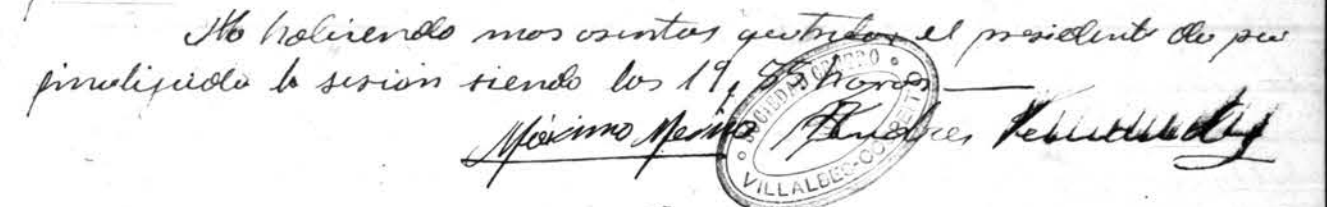 No habiendo mas asuntos que tratar el presidente da por
finalizada la sesión siendo las 19,55 horas
Máximo Mariño Andres
SOCIEDAD OBRERO
VILLALDEO-CORBEITO